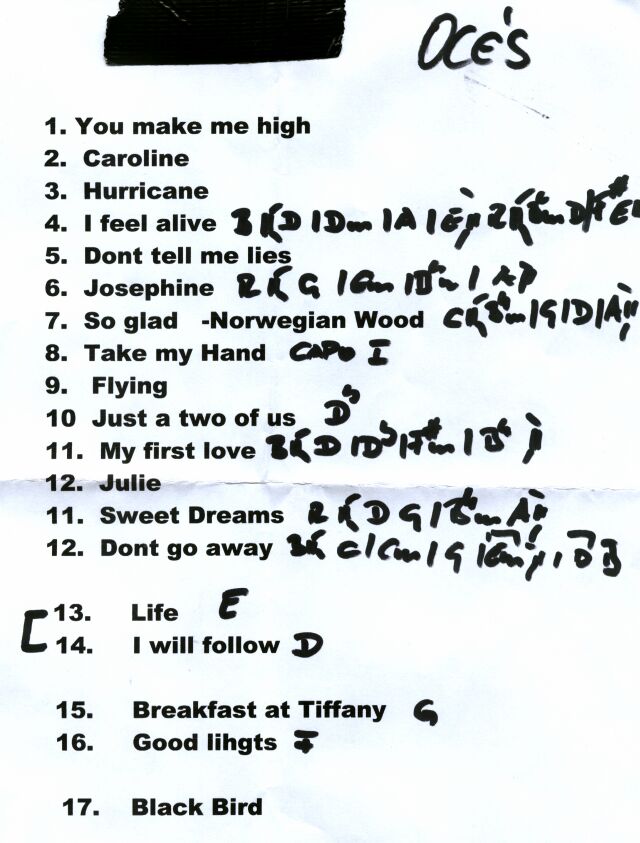 OCE'S
1. You make me high
2. Caroline
3. Hurricane
4. I feel alive
5. Dont tell me lies
6. Josephine
7. So glad -Norwegian Wood
8. Take my Hand CAPO I
9. Flying
10 Just a two of us D
11. My first love
12. Julie
11. Sweet Dreams
12. Dont go away
13. Life E
14. I will follow D
15. Breakfast at Tiffany G
16. Good lihgts F
17. Black Bird